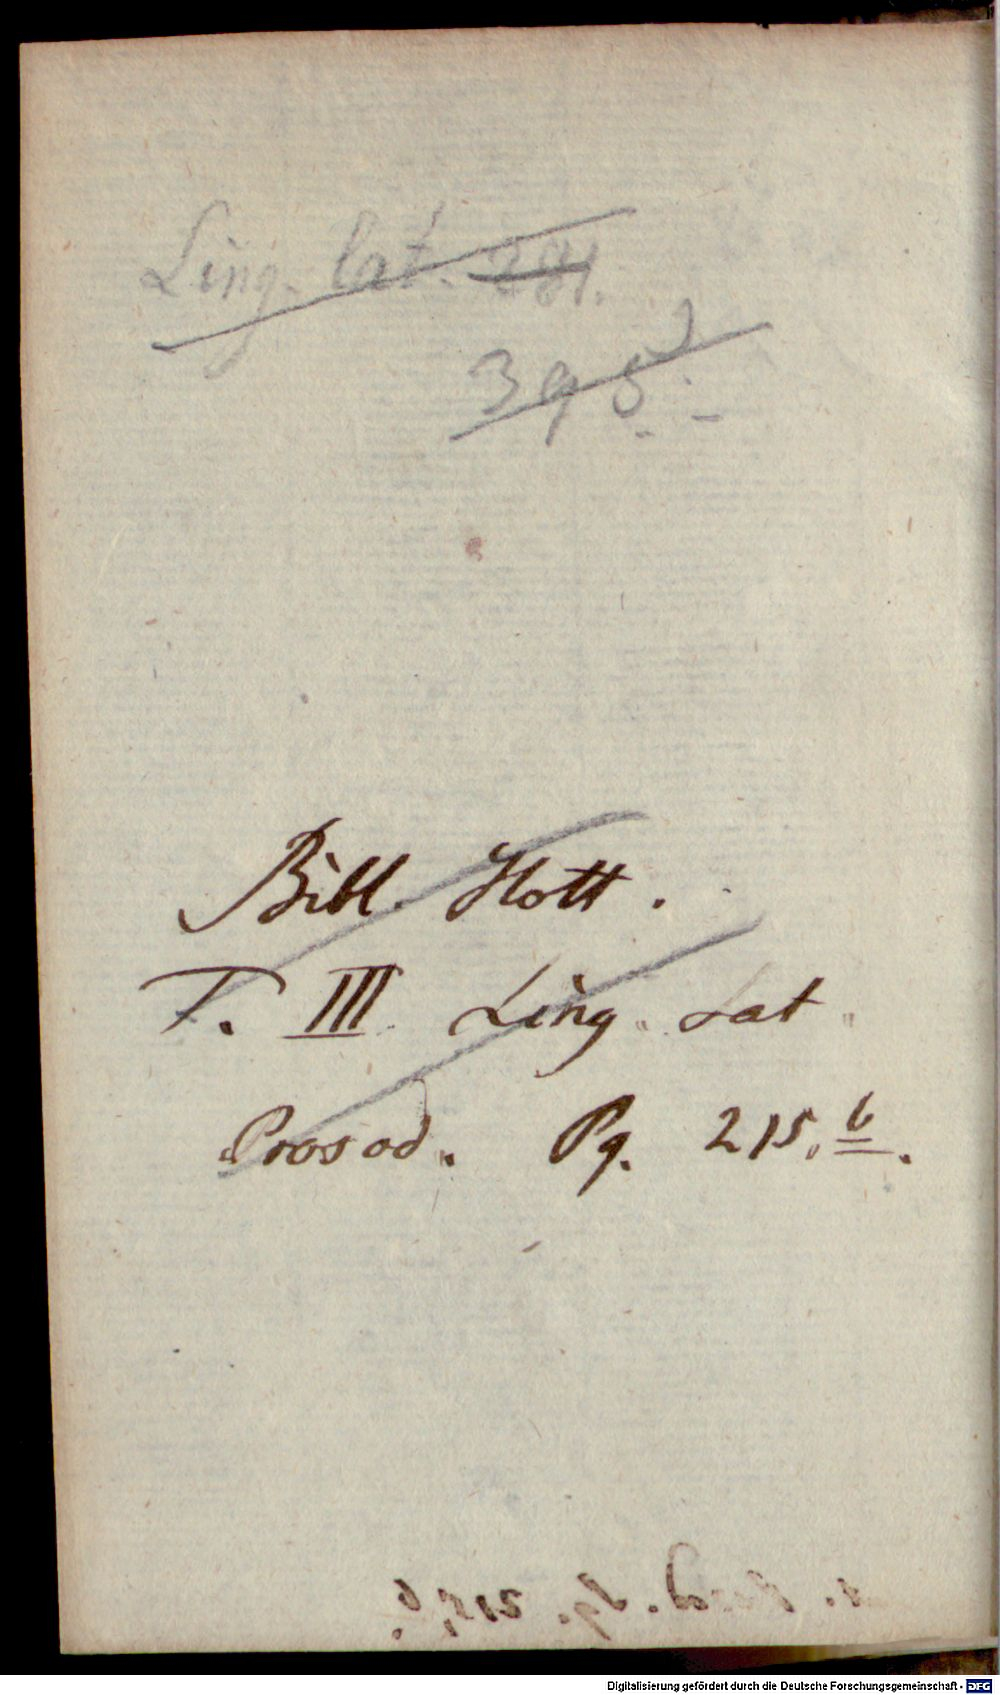 Ling. lat. 281.
395
Bibl. Hott.
T. III. Ling. Lat.
Prosod. Pg. 215. b.
Pg. 215, b.
Digitalisierung gefördert durch die Deutsche Forschungsgemeinschaft - DFG